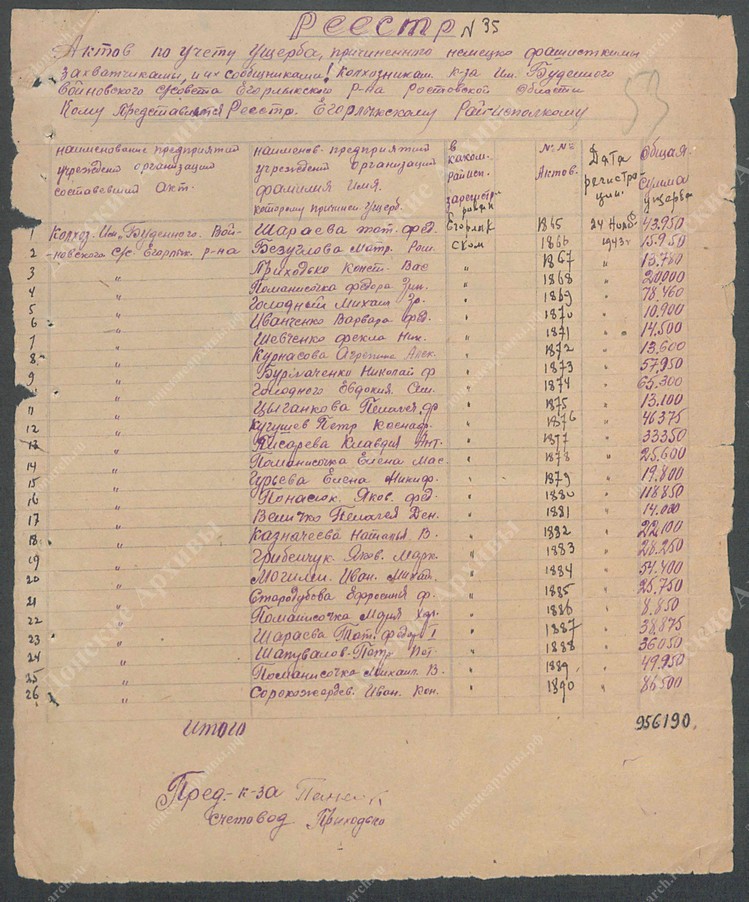 Реестр N 35
Актов по учету ущерба, причиненного немецко фашисткими
захватчиками, и их сообщниками! Колхозникам к-за Им. Буденого
Войновского с/совета Егорлыкский р-на Ростовской Области
Кому Представляется Реестр. Егорлыкскому Райисполкому
53
наименование предприятий учрежден организаций составевший Акт.
наименов. предприятий учрежден организаций фамилия Имя. которому причинен ущерб.
в каком. райисп. зарегистрирован
№№ Актов.
Дата регистрации.
Общая сумма ущерба
1 Колхоз. Им. Буденного. Вой- Шараева тат. фед. Егорлык 1865 24 Нояб 43.950
2 новского с/с Егорлык. р-на Безуглова Матр. Ском 1866 1943г 15.950
3 " Приходько Конст. Вас " 1867 " 13.750
4 " Поманисочка федора " 1868 " 20000
5 " Голодный Михаил " 1869 " 78.460
6 " Иванченко Варвара фед. " 1870 " 10.900
7 " Шевченко фекла Ник. " 1871 " 14.500
8 " Курнасова Агрепина Алек. " 1872 " 13.600
9 " Бурлаченко Николай ф " 1873 " 57.950
" Голодного Евдокия Сем. " 1874 " 65.300
11 " Цыганкова Пелагея ф " 1875 " 13.100
12 " Кугушев Петр " 1876 " 46375
13 " Писарева Клавдия Ант. " 1877 " 33350
14 " Поманисочка Елена Мас. " 1878 " 25.600
15 " Гурьева Елена Никиф. " 1879 " 19.800
16 " Понасюк. Яков. фед. " 1880 " 118.850
17 " Величко Пелагея Ден. " 1881 " 14.000
18 " Казначеева Наталья В. " 1882 " 22.100
19 " Грибенчук. Яков. Марк. " 1883 " 28.250
20 " Могилин. Иван. Михай. " 1884 " 54.400
21 " Стародубова Ефросиния ф. " 1885 " 25.750
22 " Поманисочка Мария " 1886 " 8.850
23 " Шараева Тат. федор " 1887 " 38.875
24 " Шапувалов. Петр " 1888 " 36050
25 " Поманисочка Михаил В. " 1889 " 49.950
26 " Иван. Кон. " 1890 " 86.500
Итого 956190.
Пред-к-за
счетовод Приходько
Донские Архивы
донскиеархивы.рф